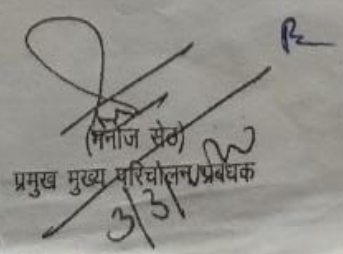 (मनोज सेठ)
प्रमुख मुख्य परिचालन प्रबंधक
3/3/